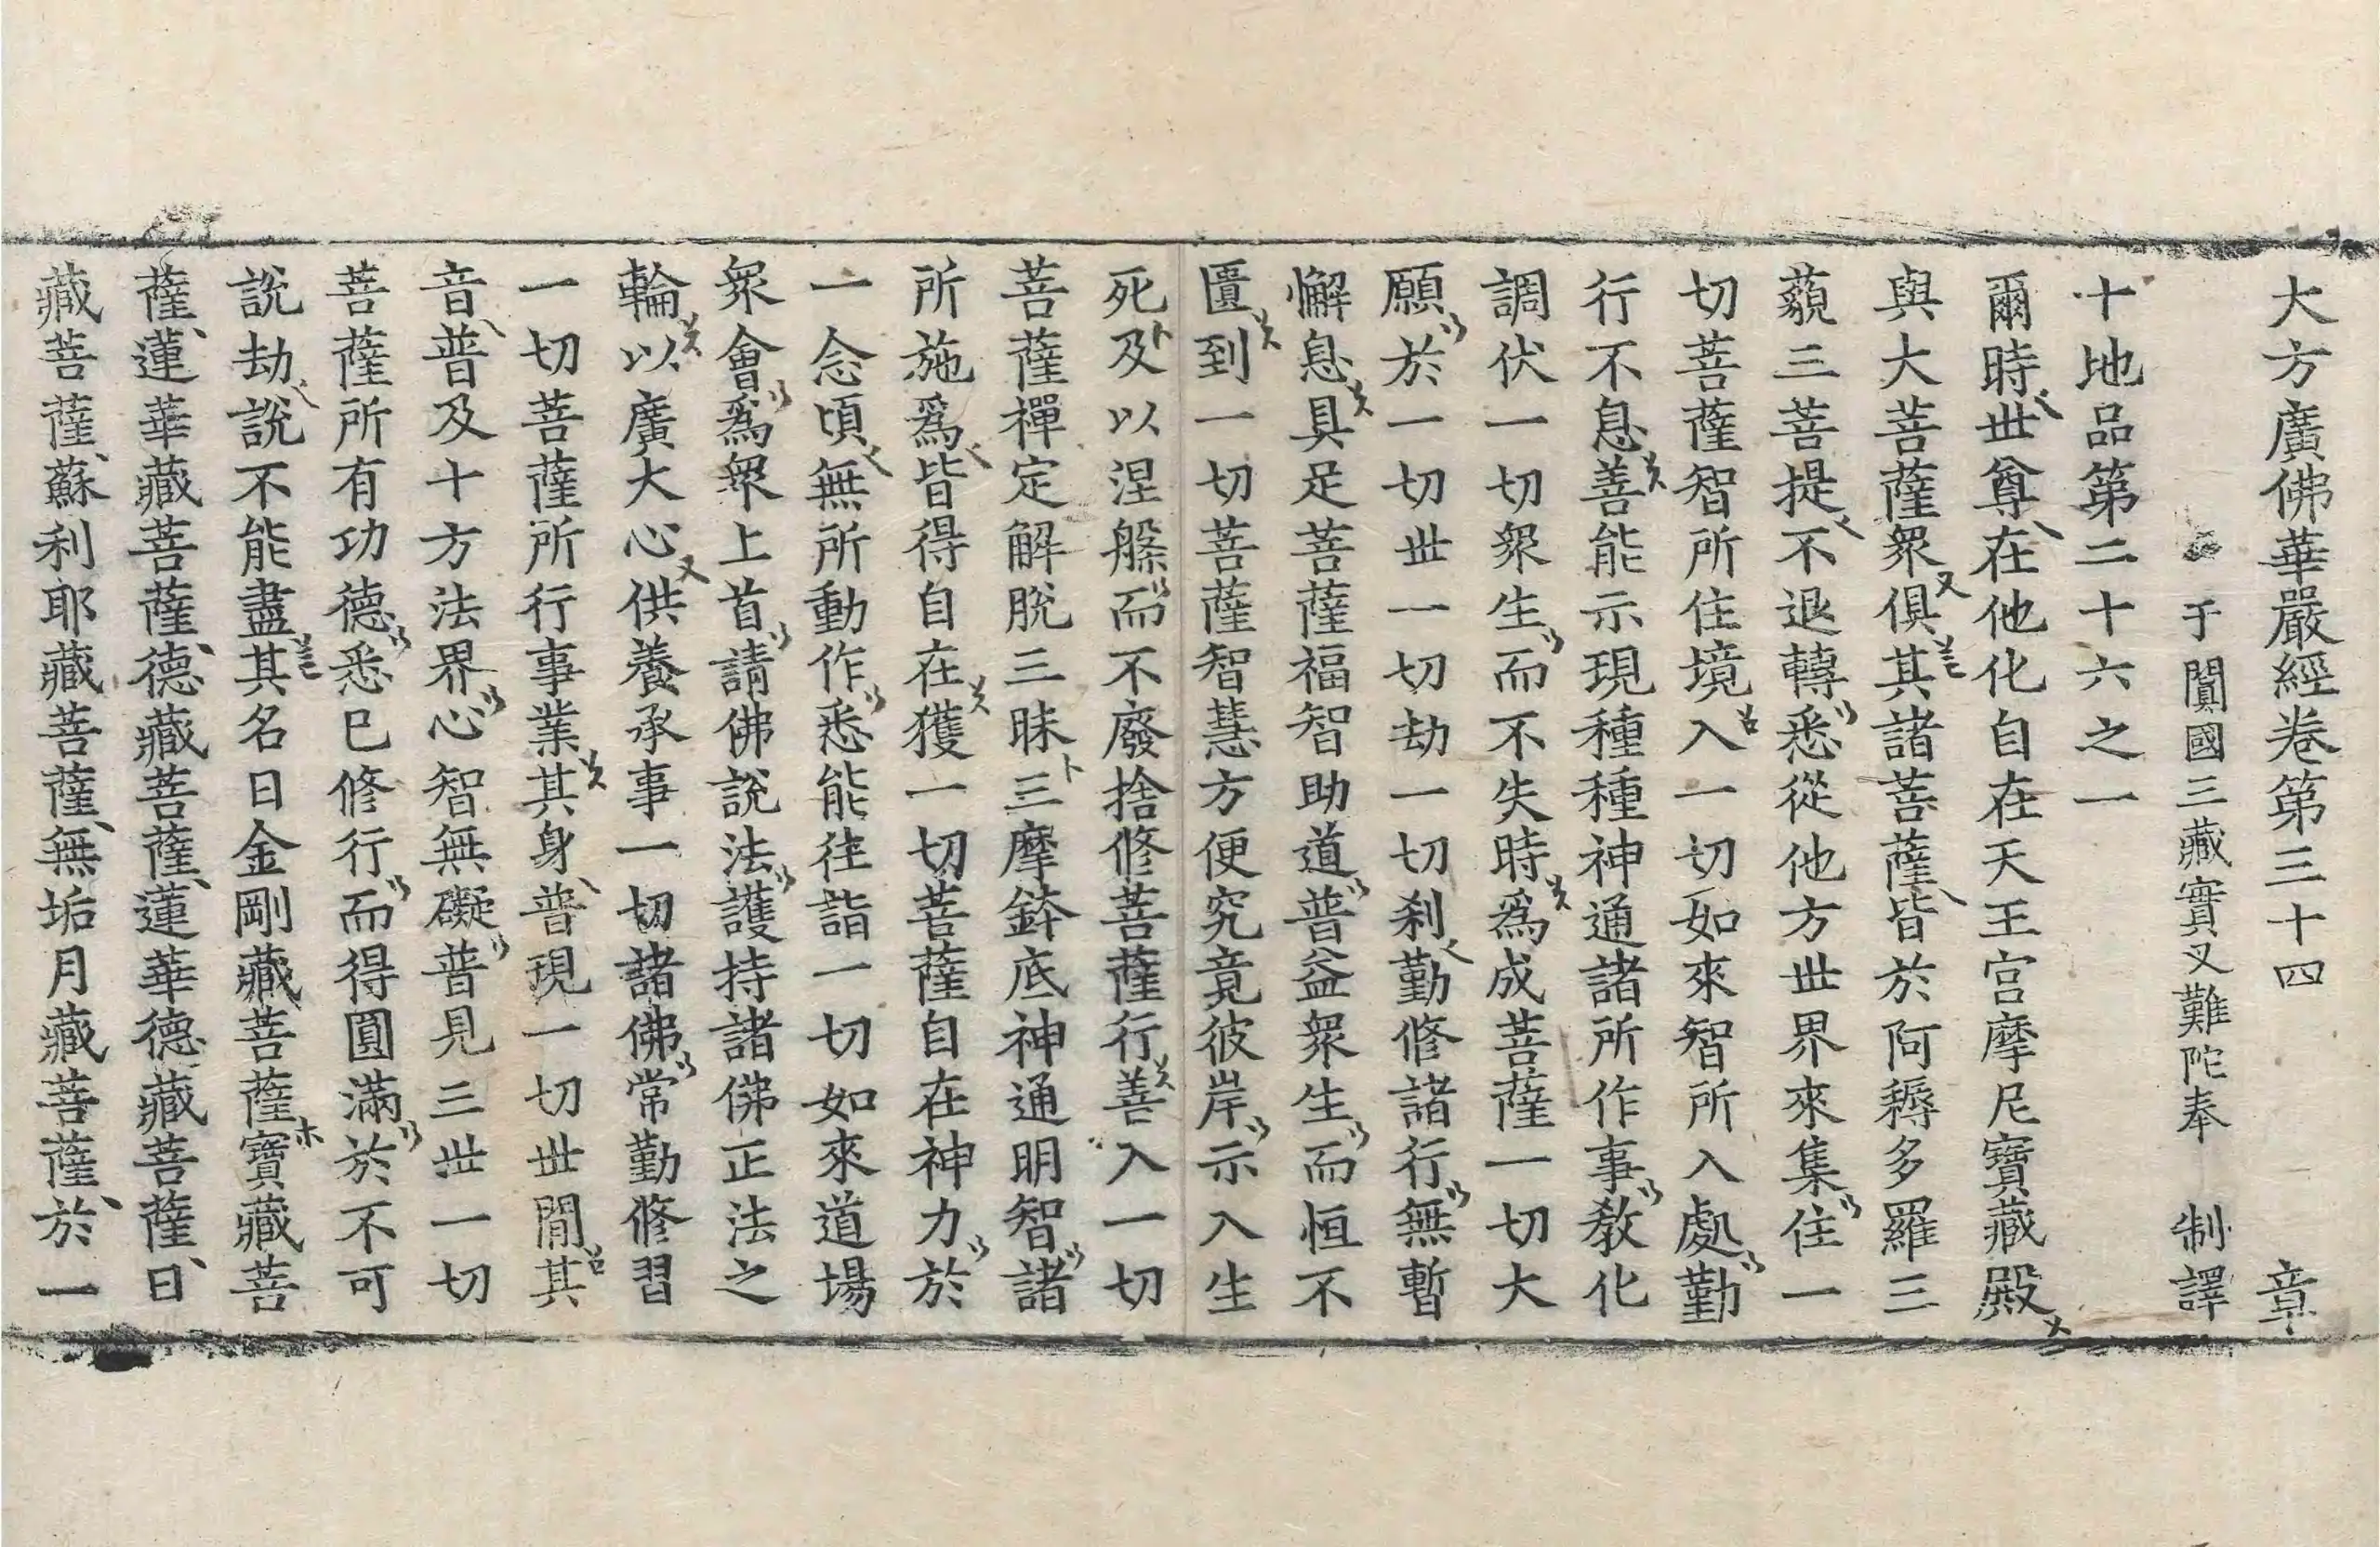 大方廣佛華嚴經卷第三十四 章
于闐國三藏實叉難陀奉 制譯
十地品第二十六之一
爾時世尊在他化自在天王宮摩尼寶藏殿
與大菩薩衆俱其諸菩薩皆於阿耨多羅三
藐三菩提不退轉悉從他方世界來集住一
切菩薩智所住境入一切如來智所入處勤
行不息善能示現種種神通諸所作事敎化
調伏一切衆生而不失時爲成菩薩一切大
願於一切世一切劫一切刹勤修諸行無暫
懈息具足菩薩福智助道普益衆生而恒不
匱到一切菩薩智慧方便究竟彼岸示入生
死及以涅槃而不廢捨修菩薩行善入一切
菩薩禪定解脫三昧三摩鉢底神通明智諸
所施爲皆得自在獲一切菩薩自在神力於
一念頃無所動作悉能往詣一切如來道場
衆會爲衆上首請佛說法護持諸佛正法之
輪以廣大心供養承事一切諸佛常勤修習
一切菩薩所行事業其身普現一切世閒其
音普及十方法界心智無礙普見三世一切
菩薩所有功德悉已修行而得圓滿於不可
說劫說不能盡其名曰金剛藏菩薩寶藏菩
薩蓮華藏菩薩德藏菩薩蓮華德藏菩薩日
藏菩薩蘇利耶藏菩薩無垢月藏菩薩於一